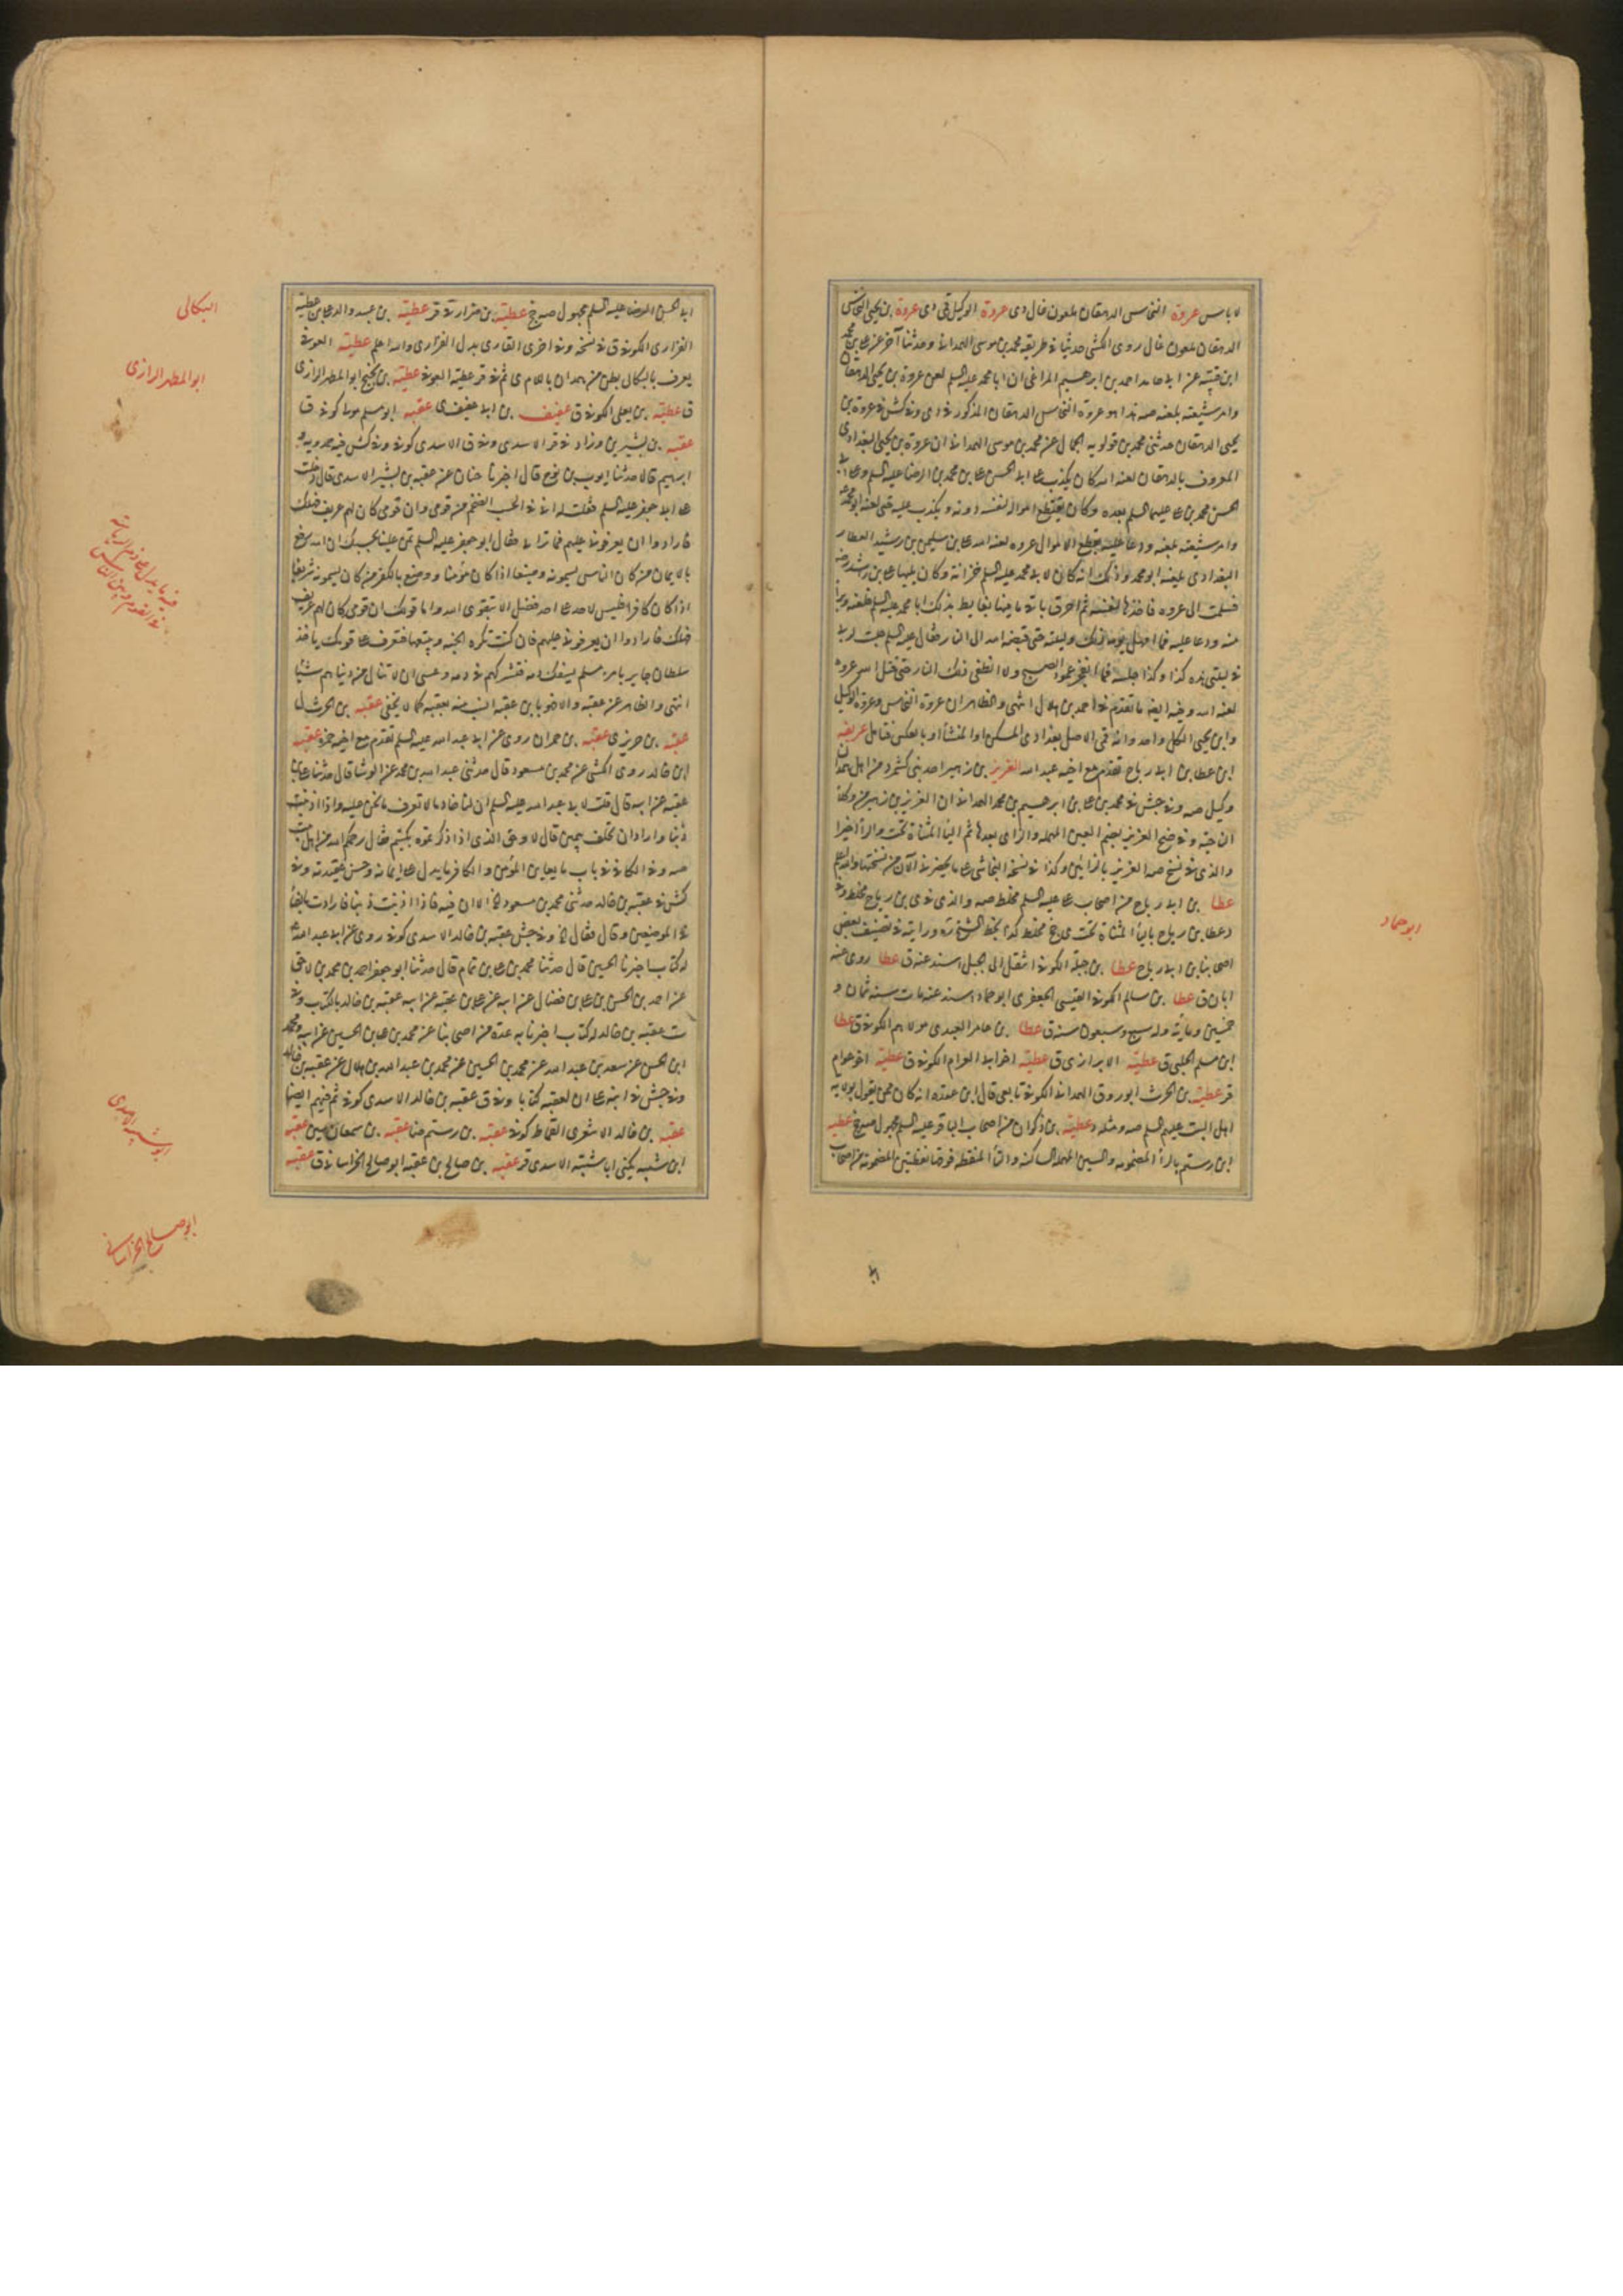 لا باس عروة النخاس الدهقان ملعون غال دى عروة الوكيل قمى دى عروة بن يحيى النخاس
الدهقان ملعون غال روى الكشى حديثا فى طريقه محمد بن موسى الهمدانى وحدثنا آخر عن على بن محمد
ابن قتيبه عن ابى حامد احمد بن ابرهيم المراغى ان ابا محمد عليه السلم لعن عروة بن يحيى الدهقان
وامر شيعته بلعنه صه هذا هو عروة النخاس الدهقان المذكور فى دى وفى كش فى عروة بن
يحيى الدهقان حدثنى محمد بن قولويه الجمال عن محمد بن موسى الهمدانى ان عروة بن يحيى البغدادى
المعروف بالدهقان لعنه الله كان يكذب على ابى الحسن على بن محمد بن الرضا عليه السلم وعلى ابى
الحسن محمد بن على عليهما السلم بعده وكان يقتطع امواله لنفسه دونه ويكذب عليه حتى لعنه ابو محمد ع
وامر شيعته بلعنه ودعا عليه بقطع الاموال عروه لعنه الله على بن سليمن بن رشيد العطار
البغدادى بلعنه ابو محمد وذلك انه كان لابى محمد عليه السلم خزانة وكان يليها على بن رشد رضه
فسلمت الى عروه فاخذها لنفسه ثم احرق باقى ما فيها يغايظ بذلك ابا محمد عليه السلم فلعنه وبرئ
منه ودعا عليه فما امهل يومه ذلك وليلته حتى قبضه الله الى النار فقال عليه السلم جلست لربى
فى ليلتى هذه كذا وكذا جلسة فما انفجر عمود الصبح ولا انطفى ذلك النار حتى قتل الله عروه
لعنه الله وفيه ايضا ما تقدم فى احمد بن هلال انتهى والظاهر ان عروة النخاس وعروة الوكيل
وابن يحيى الكل واحد وانه قمى الاصل بغدادى المسكن او المنشأ او بالعكس فتامل عريفه
ابن عطا بن ابى رباح تقدم مع اخيه عبد الله العزيز بن زهير احد بنى كشمرد من اهل همدان
وكيل صه وفى جش فى محمد بن على بن ابرهيم بن محمد الهمدانى ان العزيز بن زهير من وكلا
الناحية وفى ضح العزيز بضم العين المهمله والزاى بعدها ثم اليا المثناة تحت والرا اخيرا
والذى فى نسخ صه العزيز بالزائين وكذا فى نسخة النجاشى على ما يحضرنى الآن من نسختها والله اعلم
عطا بن ابى رباح من اصحاب على عليه السلم مخلط صه والذى فى ى بن رياح مخلط وفى
د عطا بن رياح باليا المثناة تحت ى جخ مخلط كذا بخط الشيخ ره ورايته فى تصنيف بعض
اصحابنا بن ابى رباح عطا بن جبلة الكوفى انتقل الى الجبل اسند عنه ق عطا روى عنه
ابان ق عطا بن سالم الكوفى القيسى الجعفرى ابو حماد اسند عنه مات سنه ثمان و
خمسين ومائة وله سبع وسبعون سنة ق عطا بن عامر العبدى مولاهم الكوفى ق عطا
ابن مسلم الحلبى ق عطيه الابرازى ق عطيه اخو ابى العرام الكوفى ق عطيه اخو عوام
قر عطيه بن الحرث ابوروق الهمدانى الكوفى تابعى قال ابن عقده انه كان ممن يقول بولايه
اهل البيت عليهم السلم صه ومثله د عطيه بن ذكوان من اصحاب الباقر عليه السلم مجهول صه جخ عطيه
ابن رستم بالرا المضمومه والسين المهمله الساكنه والتا المنقطه فوقها نقطتين المضمومه من اصحاب
ابو حماد
ابى الحسن الرضا عليه السلم مجهول صه جخ عطيه بن ضرار ق قر عطيه بن عبيد والد على بن عطيه
الفزارى الكوفى ق فى نسخه وفى اخرى القارى بدل الفزارى والله اعلم عطيه العوفى
يعرف بالبكالى بطن من همدان بالامى ثم فى قر عطيه العوفى عطيه بن نجيح ابو المطهر الرازى
ق عطيه بن يعلى الكوفى ق عفيف بن ابى عفيف ى عقبه ابو مسلم مولا كوفى ق
عقبه بن بشير ين وزاد فى قر الاسدى وفى ق الاسدى كوفى وفى كش فيه حمدويه و
ابرهيم قالا حدثنا ايوب بن نوح قال اخبرنا حنان عن عقبه بن بشير الاسدى قال دخلت
على ابى جعفر عليه السلم فقلت له انى فى الحسب الضخم من قومى وان قومى كان لهم عريف فهلك
فارادوا ان يعرفونى عليهم فما ترى لى فقال ابو جعفر عليه السلم تمن علينا بحسبك ان الله رفع
بالايمان من كان الناس يسمونه وضيعا اذا كان مؤمنا ووضع بالكفر من كان يسمونه شريفا
اذا كان كافرا فليس لاحد على احد فضل الا بتقوى الله واما قولك ان قومى كان لهم عريف
فهلك فارادوا ان يعرفونى عليهم فان كنت تكره الجنه وتبغضها فتعرف على قومك ياخذ
سلطان جاير بامرء مسلم ليسفك دمه فتشركهم فى دمه وعسى ان لا تنال من دنياهم شيئا
انتهى والظاهر عن عقبه والاخوبا بن عقبه انسب منه بعقبه كما لا يخفى عقبه بن الحرث ل
عقبه بن حريز ى عقبه بن حمران روى عن ابى عبد الله عليه السلم تقدم مع اخيه حمزه عقبه
ابن خالد روى الكشى عن محمد بن مسعود قال حدثنى عبد الله بن محمد عن الوشا قال حدثنا على بن
عقبه عن ابيه قال قلت لابى عبد الله عليه السلم ان لنا خادما لا تعرف ما نحن عليه واذا اذنبت
ذنبا وارادان تحلف بيمين قال لا وحق الذى اذا ذكرتموه بكيتم فقال رحمكم الله من اهل بيت
صه وفى الكافى فى باب ما يعاين المؤمن والكافر ما يدل على ايمانه وحسن عقيدته وفى
كش فى عقبه بن خالد حدثنى محمد بن مسعود الخ الا ان فيه فاذا اذنبت ذنبا فارادت بالفا
فى الموضعين وقال فقال الخ وفى جش عقبه بن خالد الاسدى كوفى روى عن ابى عبد الله ع
له كتاب اخبرنا الحسين قال حدثنا محمد بن على بن تمام قال حدثنا ابو جعفر احمد بن محمد بن لاحق
عن احمد بن الحسن بن على بن فضال عن ابيه عن على بن عقبه عن ابيه عقبه بن خالد بالكتاب وفى
ست عقبه بن خالد له كتاب اخبرنا به عدة من اصحابنا عن محمد بن على بن الحسين عن ابيه ومحمد
ابن الحسن عن سعد بن عبد الله عن محمد بن الحسين عن محمد بن عبد الله بن هلال عن عقبه بن خالد
وفى جش فى ابنه على ان لعقبه كتابا وفى ق عقبه بن خالد الاسدى كوفى ثم فيهم ايضا
عقبه بن خالد الاشعرى القماط كوفى عقبه بن رستم ضا عقبه بن سمعان سين عقبه
ابن شيبه يكنى ابا شيبة الاسدى قر عقبه بن صالح بن عقبه ابو صالح الخراسانى ق عقبه
البكالى
ابو المطهر الرازى
ابو شيبه الاسدى
ابو صالح الخراسانى